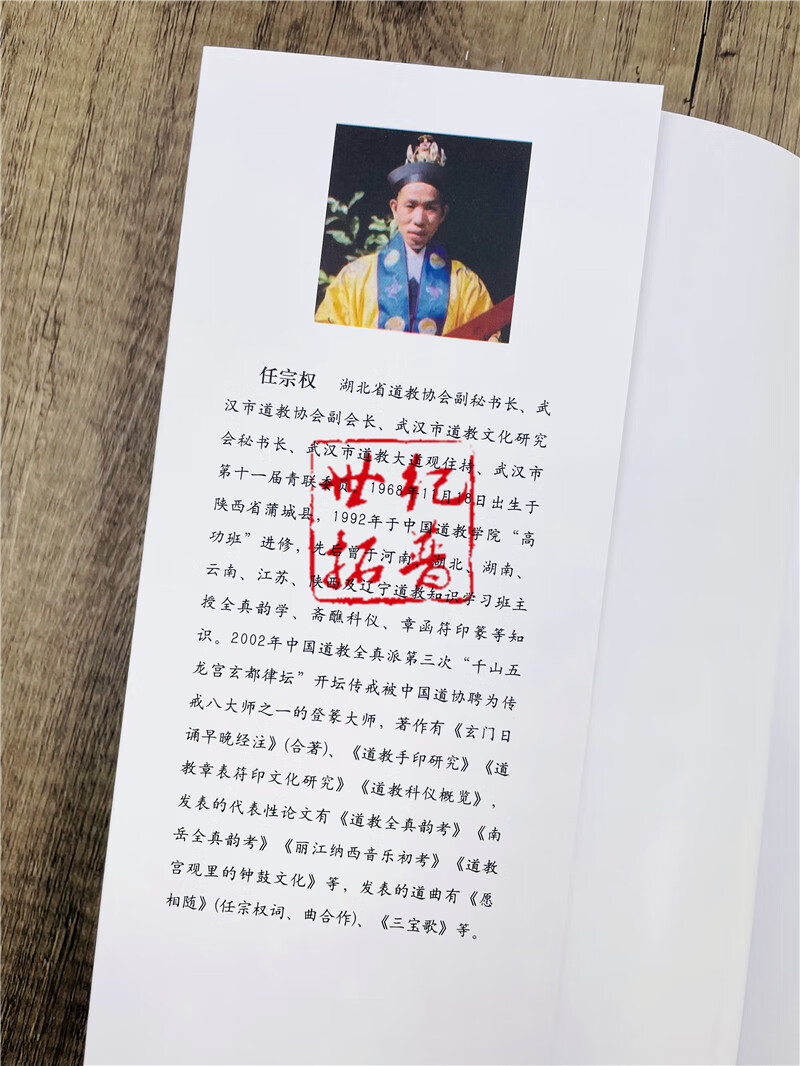 任宗权 湖北省道教协会副秘书长、武
汉市道教协会副会长、武汉市道教文化研究
会秘书长、武汉市道教大道观住持、武汉市
第十一届青联委员。1968年11月18日出生于
陕西省蒲城县，1992年于中国道教学院“高
功班”进修，先后曾于河南、湖北、湖南、
云南、江苏、陕西及辽宁道教知识学习班主
授全真韵学、斋醮科仪、章函符印篆等知
识。2002年中国道教全真派第三次“千山五
龙宫玄都律坛”开坛传戒被中国道协聘为传
戒八大师之一的登篆大师，著作有《玄门日
诵早晚经注》(合著)、《道教手印研究》《道
教章表符印文化研究》《道教科仪概览》，
发表的代表性论文有《道教全真韵考》《南
岳全真韵考》《丽江纳西音乐初考》《道教
宫观里的钟鼓文化》等，发表的道曲有《愿
相随》(任宗权词、曲合作)、《三宝歌》等。
世纪
拓普